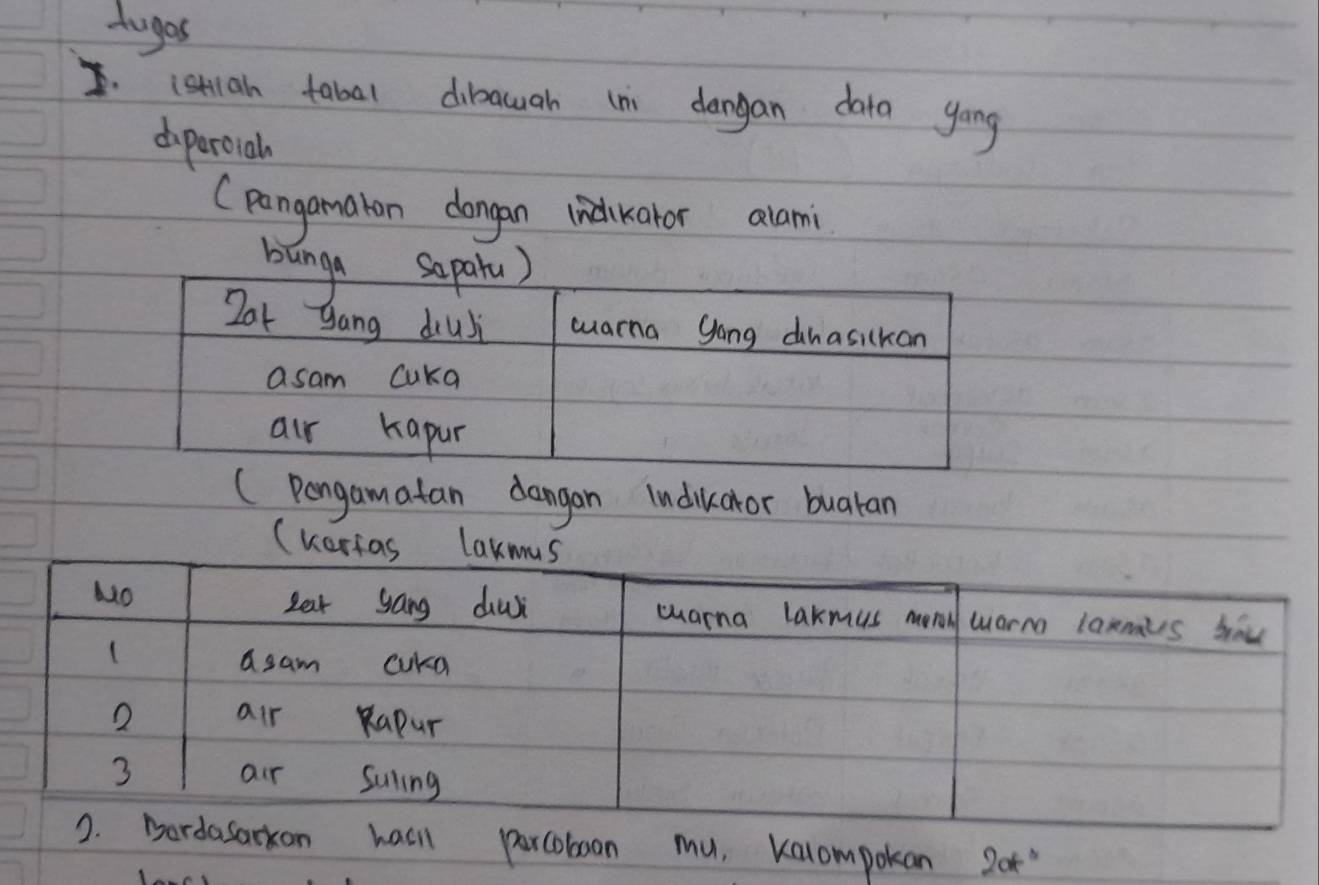 tugas
I. isilah tabal dibawah ini dangan data yang
diparolah
(Pangamatan dangan indikator alami
bunga sapatu)
Zat yang diuji warna yang dihasilkan
asam cuka
air kapur
(Pangamatan dangan indikator buatan
(kartas lakmus
No zat yang diuji warna lakmus merah warna lakmus biru
1 asam cuka
2 air kapur
3 air suling
2. Bardasarkan hasil parcobaan mu, kalompokan zat"